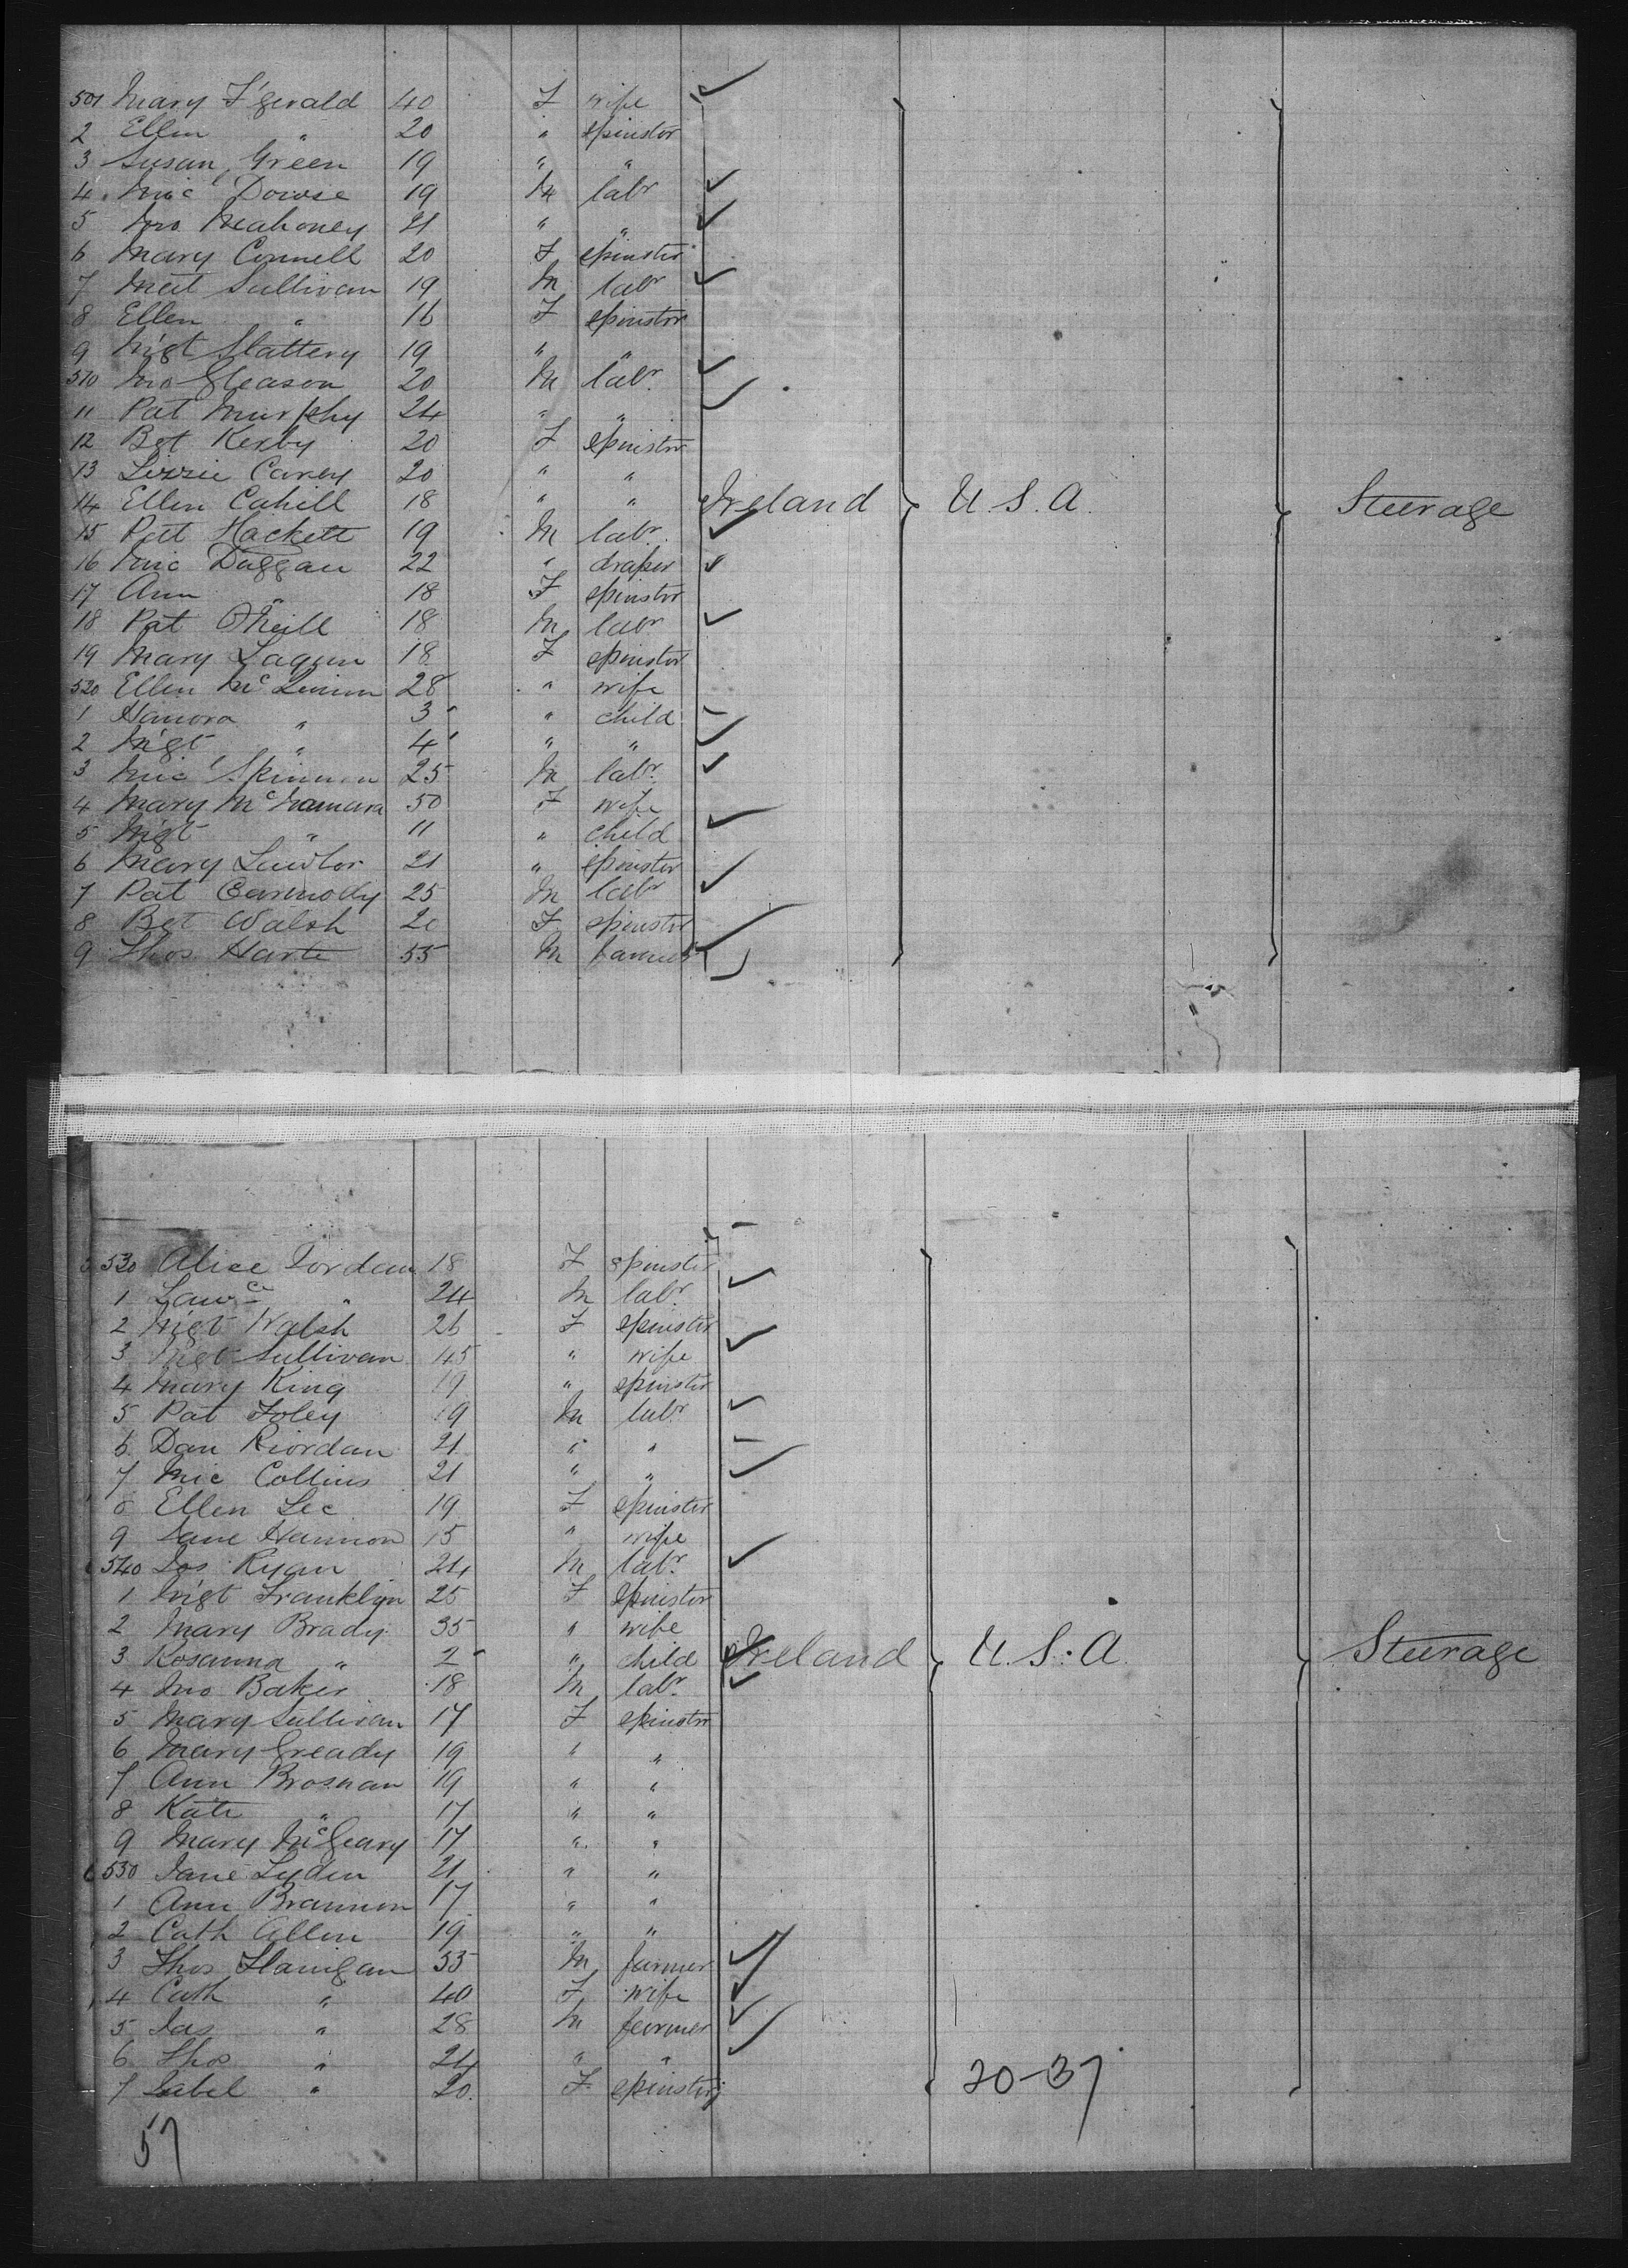 501 Mary F'gerald 40 F wife
2 Ellen " 20 " spinster
3 Susan Green 19 " "
4 Mic Dowse 19 M labr
5 Jno Mahoney 21 " "
6 Mary Connell 20 F spinster
7 Mat Sullivan 19 M labr
8 Ellen " 16 F spinster
9 Mgt Slattery 19 " "
510 Jno Gleason 20 M labr
11 Pat Murphy 24 " "
12 Bgt Kerby 20 F spinster
13 Lizzie Carey 20 " "
14 Ellen Cahill 18 " " Ireland U.S.A. Steerage
15 Pat Hackett 19 M labr
16 Mic Duggan 22 " draper
17 Ann " 18 F spinster
18 Pat O'Neill 18 M labr
19 Mary 18 F spinster
520 Ellen 28 " wife
1 Hanora " 3 " child
2 Mgt " 4 " "
3 Mic 25 M labr
4 Mary McNamara 50 F wife
5 Mgt " 11 " child
6 Mary Lawlor 21 " spinster
7 Pat Carmody 25 M labr
8 Bgt Walsh 20 F spinster
9 Thos Harte 55 M farmer
530 Alice Jordan 18 F spinster
1 Lawce " 24 M labr
2 Mgt Walsh 26 F spinster
3 Mgt Sullivan 45 " wife
4 Mary King 19 " spinster
5 Pat Foley 19 M labr
6 Dan Riordan 21 " "
7 Mic Collins 21 " "
8 Ellen Lee 19 F spinster
9 Jane Hannon 15 " wife
540 Jos Ryan 24 M labr
1 Mgt Franklyn 25 F spinster
2 Mary Brady 35 " wife
3 Rosanna " 2 " child Ireland U.S.A. Steerage
4 Jno Baker 18 M labr
5 Mary Sullivan 17 F spinster
6 Mary Gready 19 " "
7 Ann Brosnan 19 " "
8 Kate " 17 " "
9 Mary McGeary 17 " "
550 Jane Lyden 21 " "
1 Ann Brannon 17 " "
2 Cath Allen 19 " "
3 Thos Flanigan 55 M farmer
4 Cath " 40 F wife
5 Jas " 28 M farmer
6 Thos " 24 " "
7 Isabel " 20 F spinster
20-37
57